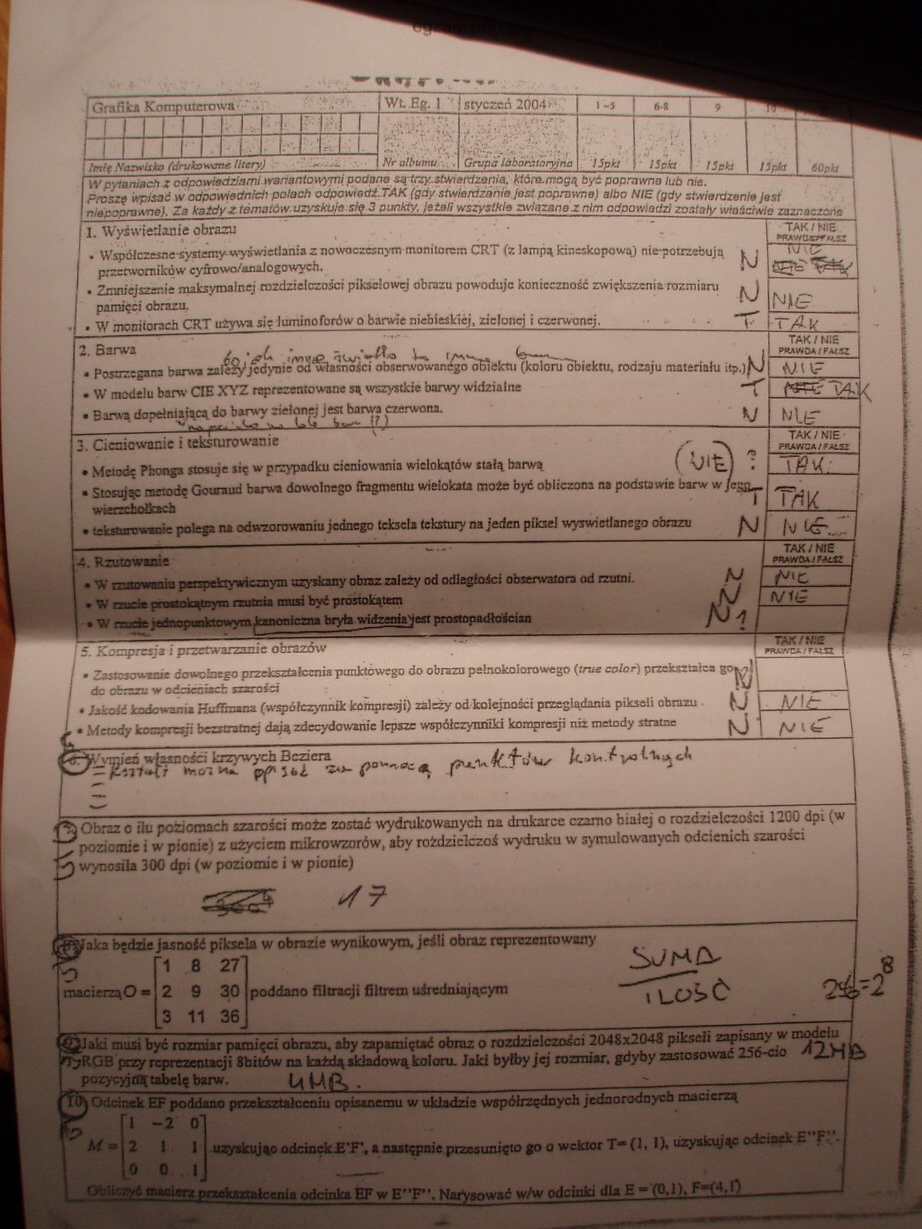 Grafika Komputerowa
Wt. Eg. 1
styczeń 2004
1-5
6-8
9
10
Imię Nazwisko (drukowane litery)
Nr albumu
Grupa laboratoryjna
15pkt
15pkt
15pkt
15pkt
60pkt
W pytaniach z odpowiedziami wariantowymi podane są trzy stwierdzenia, które mogą być poprawne lub nie.
Proszę wpisać w odpowiednich polach odpowiedź TAK (gdy stwierdzenie jest poprawne) albo NIE (gdy stwierdzenie jest
niepoprawne). Za każdy z tematów uzyskuje się 3 punkty, jeżeli wszystkie związane z nim odpowiedzi zostały właściwie zaznaczone
1. Wyświetlanie obrazu
TAK / NIE
PRAWDA/FAŁSZ
• Współczesne systemy wyświetlania z nowoczesnym monitorem CRT (z lampą kineskopową) nie potrzebują
przetworników cyfrowo/analogowych.
N
NIE
• Zmniejszenie maksymalnej rozdzielczości pikselowej obrazu powoduje konieczność zwiększenia rozmiaru
pamięci obrazu.
N
NIE
• W monitorach CRT używa się luminoforów o barwie niebieskiej, zielonej i czerwonej.
T
TAK
2. Barwa
TAK / NIE
PRAWDA / FAŁSZ
• Postrzegana barwa zależy jedynie od własności obserwowanego obiektu (koloru obiektu, rodzaju materiału itp.)
N
NIE
• W modelu barw CIE XYZ reprezentowane są wszystkie barwy widzialne
T
TAK
• Barwą dopełniającą do barwy zielonej jest barwa czerwona.
N
NIE
3. Cieniowanie i teksturowanie
TAK / NIE
PRAWDA / FAŁSZ
• Metodę Phonga stosuje się w przypadku cieniowania wielokątów stałą barwą
(NIE) ?
TAK
• Stosując metodę Gouraud barwa dowolnego fragmentu wielokata może być obliczona na podstawie barw w jego
wierzchołkach
T
TAK
• teksturowanie polega na odwzorowaniu jednego teksela tekstury na jeden piksel wyswietlanego obrazu
N
NIE
4. Rzutowanie
TAK / NIE
PRAWDA / FAŁSZ
• W rzutowaniu perspektywicznym uzyskany obraz zależy od odległości obserwatora od rzutni.
N
NIE
• W rzucie prostokątnym rzutnia musi być prostokątem
N
NIE
• W rzucie jednopunktowym kanoniczna bryła widzenia jest prostopadłościan
N?
5. Kompresja i przetwarzanie obrazów
TAK / NIE
PRAWDA / FAŁSZ
• Zastosowanie dowolnego przekształcenia punktowego do obrazu pełnokolorowego (true color) przekształca go
do obrazu w odcieniach szarości
N
• Jakość kodowania Huffmana (współczynnik kompresji) zależy od kolejności przeglądania pikseli obrazu
N
NIE
• Metody kompresji bezstratnej dają zdecydowanie lepsze współczynniki kompresji niż metody stratne
N
NIE
6. Wymień własności krzywych Beziera
- kształt można opisać za pomocą punktów kontrolnych
7. Obraz o ilu poziomach szarości może zostać wydrukowanych na drukarce czarno białej o rozdzielczości 1200 dpi (w
poziomie i w pionie) z użyciem mikrowzorów, aby rozdzielczoś wydruku w symulowanych odcienich szarości
wynosiła 300 dpi (w poziomie i w pionie)
17
8. Jaka będzie jasność piksela w obrazie wynikowym, jeśli obraz reprezentowany
SUMA
ILOŚĆ
1 8 27
macierzą O = 2 9 30 poddano filtracji filtrem uśredniającym
3 11 36
256=2^8
9. Jaki musi być rozmiar pamięci obrazu, aby zapamiętać obraz o rozdzielczości 2048x2048 pikseli zapisany w modelu
RGB przy reprezentacji 8bitów na każdą składową koloru. Jaki byłby jej rozmiar, gdyby zastosować 256-cio
12MB
pozycyjną tabelę barw.
4MB.
10. Odcinek EF poddano przekształceniu opisanemu w układzie współrzędnych jednorodnych macierzą
1 -2 0
M = 2 1 1 uzyskując odcinek E'F', a następnie przesunięto go o wektor T= (1, 1), uzyskując odcinek E''F''.
0 0 1
Obliczyć macierz przekształcenia odcinka EF w E''F''. Narysować w/w odcinki dla E = (0,1), F=(4,1)